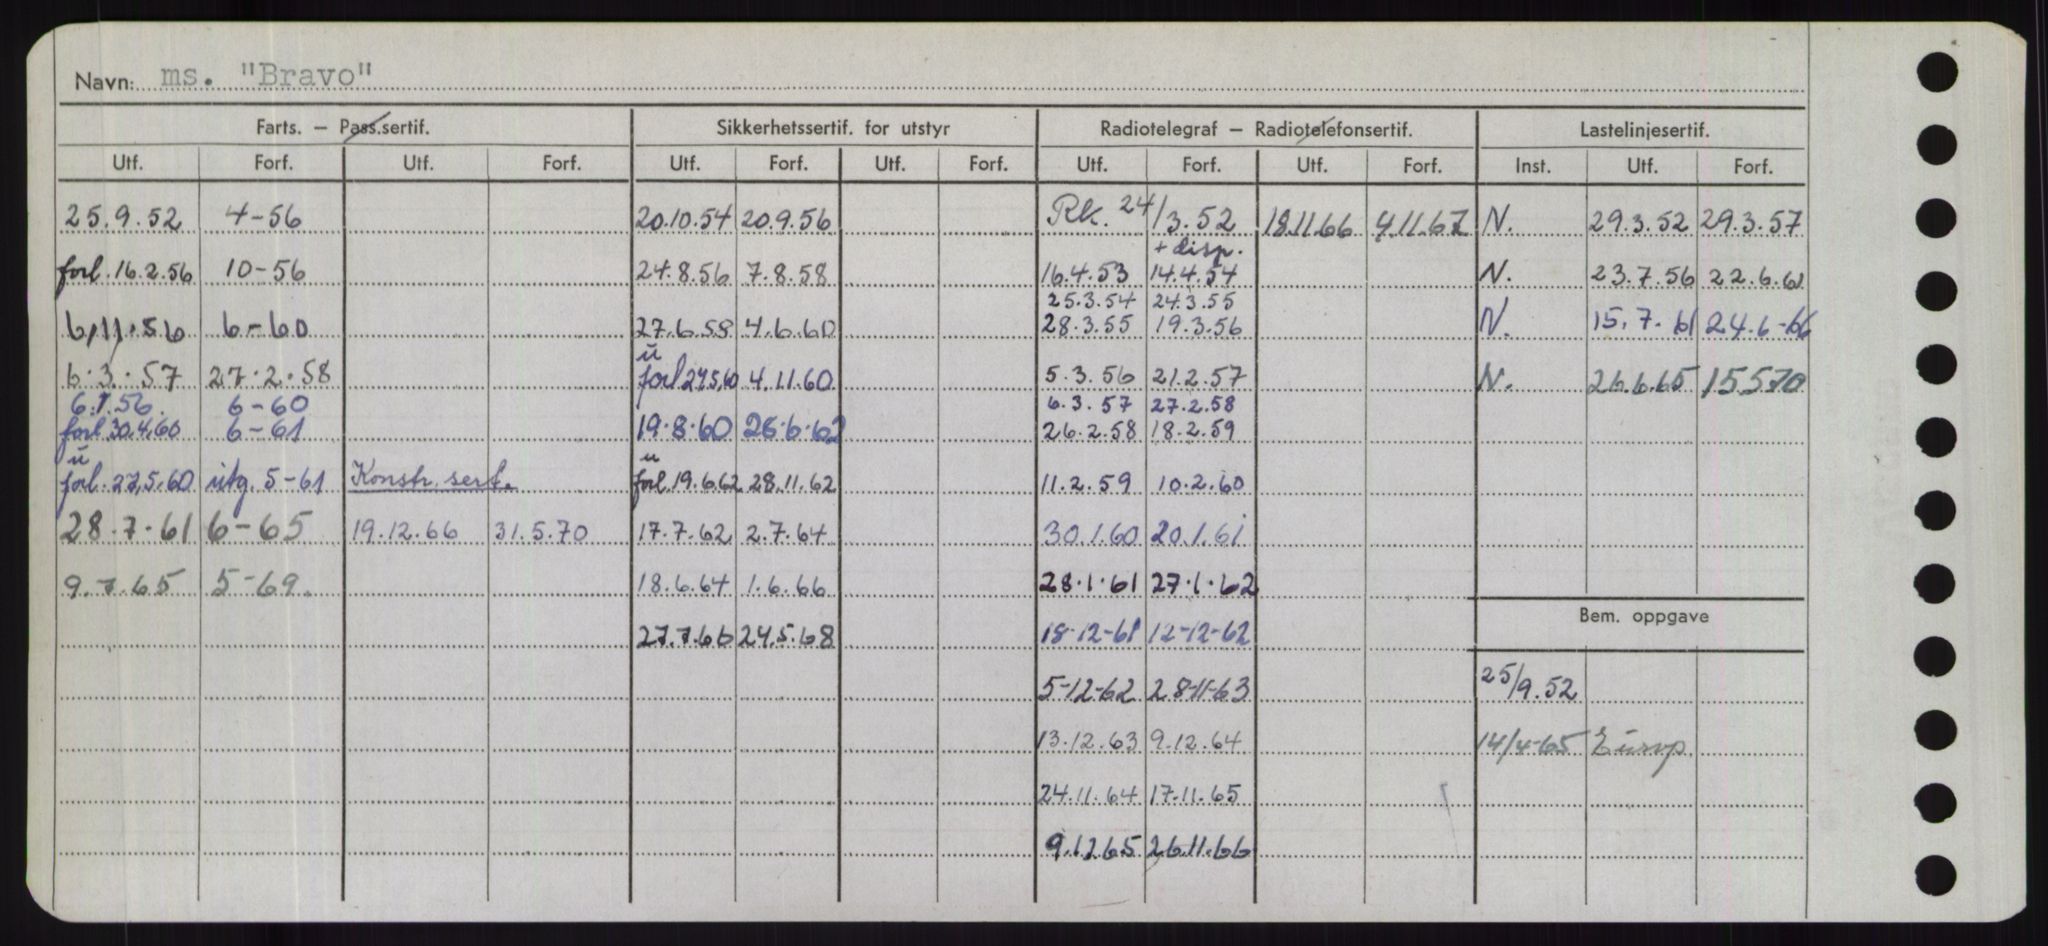 Navn: ms. "Bravo"
Farts. – Pass.sertif. Sikkerhetssertif. for utstyr Radiotelegraf – Radiotelefonsertif. Lastelinjesertif.
Utf. Forf. Utf. Forf. Utf. Forf. Utf. Forf. Utf. Forf. Utf. Forf. Inst. Utf. Forf.
25.9.52 4-56 20.10.54 20.9.56 Rk. 24/3.52 18.11.66 9.11.67 N. 29.3.52 29.3.57
+ disp.
forl. 16.2.56 10-56 24.8.56 7.8.58 16.4.53 14.4.54 N. 23.7.56 22.6.61
25.3.54 24.3.55
6.11.56 6-60 27.6.58 4.6.60 28.3.55 19.3.56 N. 15.7.61 24.6-66
u
6.3.57 27.2.58 forl 27.5.60 4.11.60 5.3.56 21.2.57 N. 26.6.65 15.5.70
6.1.56. 6-60 6.3.57 27.2.58
forl 30.4.60 6-61 19.8.60 26.6.62 26.2.58 18.2.59
u u
forl. 27.5.60 utg. 5-61 Konstr. sert. forl. 19.6.62 28.11.62 11.2.59 10.2.60
28.7.61 6-65 19.12.66 31.5.70 17.7.62 2.7.64 30.1.60 20.1.61
9.7.65 5-69. 18.6.64 1.6.66 28.1.61 27.1.62
Bem. oppgave
27.7.66 24.5.68 18-12-61 12-12-62
5-12-62 28-11-63 25/9.52
13.12.63 9.12.64 14/4-65 Europ.
24.11.64 17.11.65
9.12.65 26.11.66